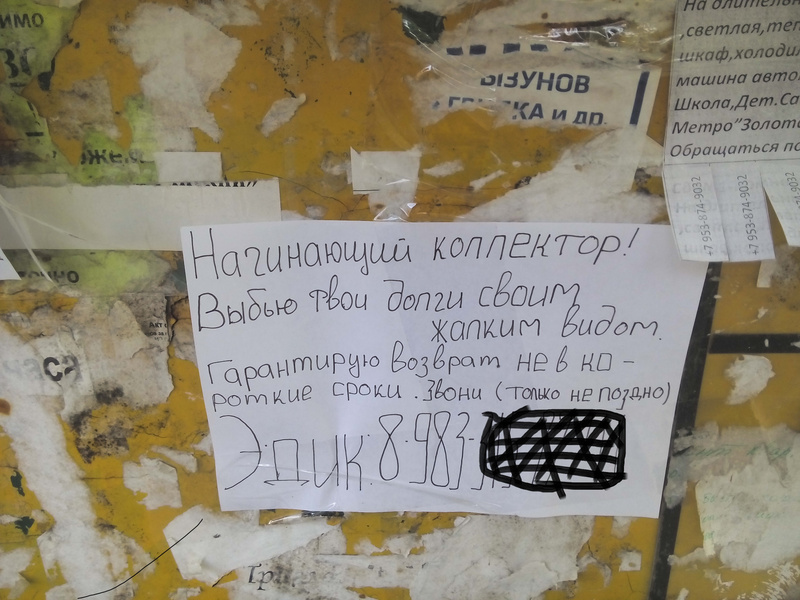 имо
ЫЗУНОВ
КА И ДР.
На длительн
,светлая,теп
шкаф,холодил
машина авто
Школа,Дет.Са
Метро"Золота
Обращаться по
+7 953-874-9032
+7 953-874-9032
Начинающий коллектор!
Выбью твои долги своим
жалким видом.
Гарантирую возврат не в ко-
роткие сроки. Звони (только не поздно)
Эдик 8-983-
часа